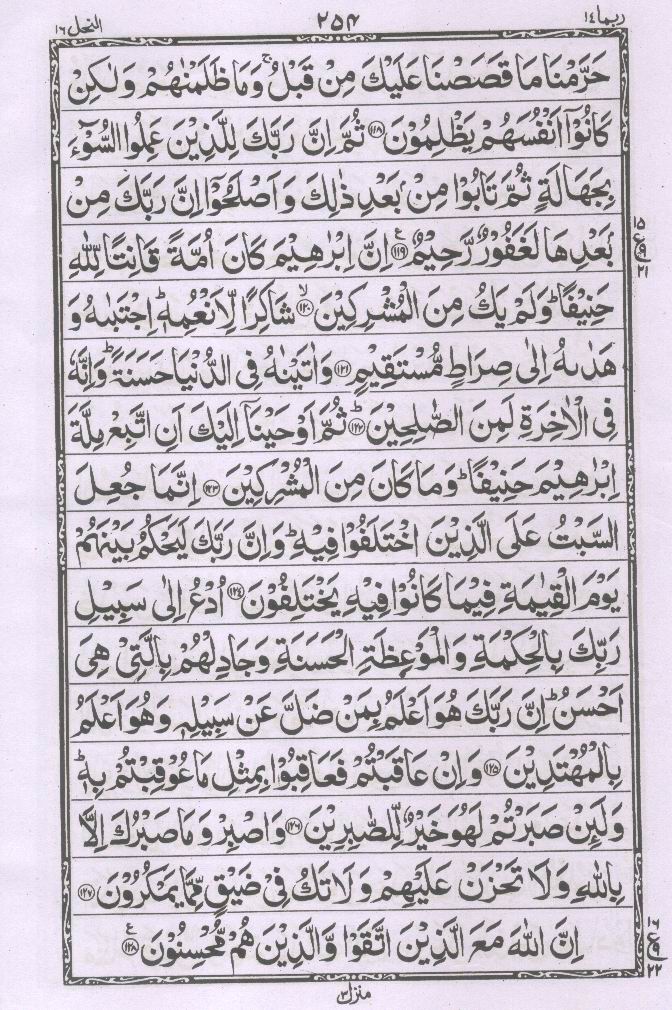 ربما ١٤
٢٥٤
النحل ١٦
حَرَّمْنَا مَا قَصَصْنَا عَلَيْكَ مِنْ قَبْلُ ۚ وَمَا ظَلَمْنٰهُمْ وَلٰكِنْ
كَانُوْٓا اَنْفُسَهُمْ يَظْلِمُوْنَ ﴿١١٨﴾ ثُمَّ اِنَّ رَبَّكَ لِلَّذِيْنَ عَمِلُوا السُّوْٓءَ
بِجَهَالَةٍ ثُمَّ تَابُوْا مِنْۢ بَعْدِ ذٰلِكَ وَاَصْلَحُوْٓا اِنَّ رَبَّكَ مِنْۢ
بَعْدِهَا لَغَفُوْرٌ رَّحِيْمٌ ﴿١١٩﴾ ع اِنَّ اِبْرٰهِيْمَ كَانَ اُمَّةً قَانِتًا لِّلّٰهِ
١٥
ع
٢١
حَنِيْفًا ؕ وَلَمْ يَكُ مِنَ الْمُشْرِكِيْنَ ﴿١٢٠﴾ ۙ شَاكِرًا لِّاَنْعُمِهٖ ؕ اِجْتَبٰىهُ وَ
هَدٰىهُ اِلٰى صِرَاطٍ مُّسْتَقِيْمٍ ﴿١٢١﴾ وَاٰتَيْنٰهُ فِى الدُّنْيَا حَسَنَةً ؕ وَاِنَّهٗ
فِى الْاٰخِرَةِ لَمِنَ الصّٰلِحِيْنَ ﴿١٢٢﴾ ؕ ثُمَّ اَوْحَيْنَآ اِلَيْكَ اَنِ اتَّبِعْ مِلَّةَ
اِبْرٰهِيْمَ حَنِيْفًا ؕ وَمَا كَانَ مِنَ الْمُشْرِكِيْنَ ﴿١٢٣﴾ اِنَّمَا جُعِلَ
السَّبْتُ عَلَى الَّذِيْنَ اخْتَلَفُوْا فِيْهِ ؕ وَاِنَّ رَبَّكَ لَيَحْكُمُ بَيْنَهُمْ
يَوْمَ الْقِيٰمَةِ فِيْمَا كَانُوْا فِيْهِ يَخْتَلِفُوْنَ ﴿١٢٤﴾ اُدْعُ اِلٰى سَبِيْلِ
رَبِّكَ بِالْحِكْمَةِ وَالْمَوْعِظَةِ الْحَسَنَةِ وَجَادِلْهُمْ بِالَّتِىْ هِىَ
اَحْسَنُ ؕ اِنَّ رَبَّكَ هُوَ اَعْلَمُ بِمَنْ ضَلَّ عَنْ سَبِيْلِهٖ وَهُوَ اَعْلَمُ
بِالْمُهْتَدِيْنَ ﴿١٢٥﴾ وَاِنْ عَاقَبْتُمْ فَعَاقِبُوْا بِمِثْلِ مَا عُوْقِبْتُمْ بِهٖ ؕ
وَلَئِنْ صَبَرْتُمْ لَهُوَ خَيْرٌ لِّلصّٰبِرِيْنَ ﴿١٢٦﴾ وَاصْبِرْ وَمَا صَبْرُكَ اِلَّا
بِاللّٰهِ وَلَا تَحْزَنْ عَلَيْهِمْ وَلَا تَكُ فِىْ ضَيْقٍ مِّمَّا يَمْكُرُوْنَ ﴿١٢٧﴾
اِنَّ اللّٰهَ مَعَ الَّذِيْنَ اتَّقَوْا وَّالَّذِيْنَ هُمْ مُّحْسِنُوْنَ ﴿١٢٨﴾ ع
١٦
ع
٢٢
منزل ٣